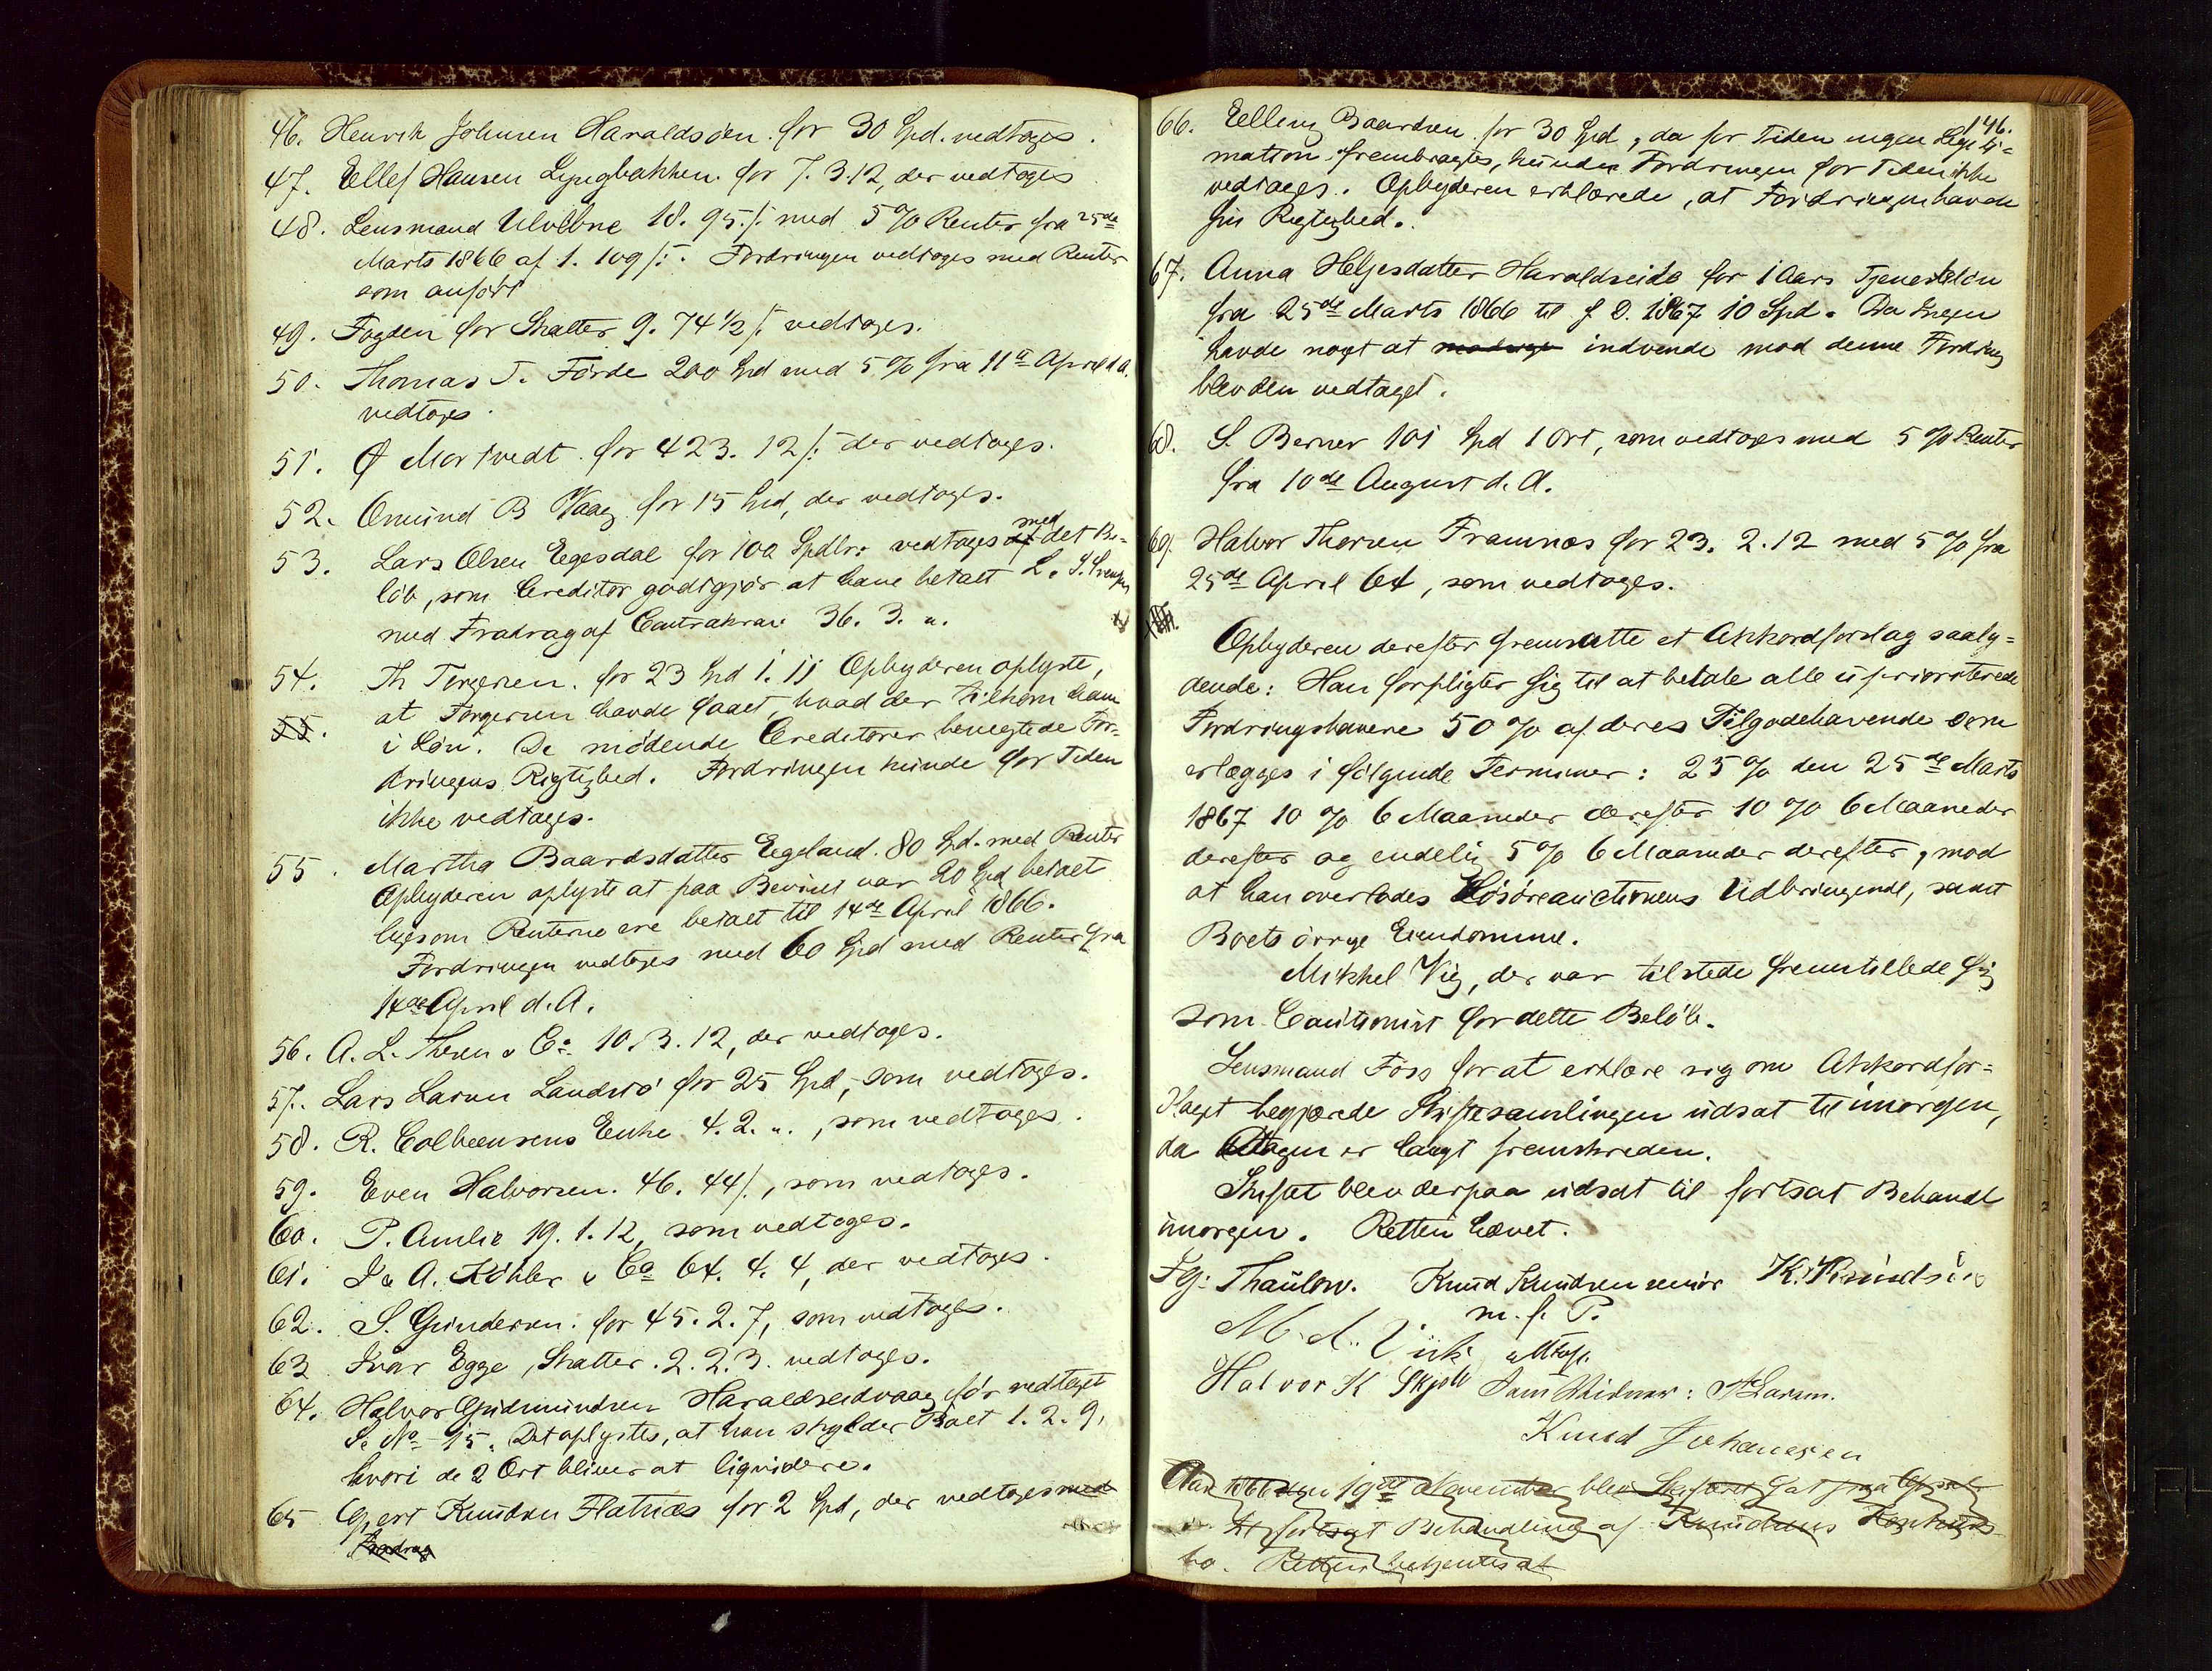 46. Henrik Johnsen Haraldsöen for 30 Spd. vedtages.
47. Ellef Hansen Lyngbakken for 7. 3. 12, der vedtages
48. Lensmand Ulvebne 18. 95 /: med 5 % Renter fra 25de
Marts 1866 af 1. 109 /:. Fordringen vedtages med Renter
som anført
49. Fogden for Skatter 9. 74 1/2 /: vedtages.
50. Thomas T. Förde 200 Spd med 5 % fra 11te April d. A.
vedtages.
51. Ø Mortvedt for 423. 12 /: der vedtages.
52. Omund B Vaag for 15 Spd, der vedtages.
53. Lars Olsen Eegesdal for 100 Spdlr: vedtages med det Be-
löb, som Creditor godtgjör at have betalt L. S. Svendsen
med Fradrag af Contrakrav 36. 3. ".
54. Th Torgersen for 23 Spd 1. 11 Opbyderen oplyste,
at Torgersen havde faaet, hvad der tilkom ham
55. i Lön. De mødende Creditorer benegtede For-
dringens Rigtighed. Fordringen kunde for Tiden
ikke vedtages.
55. Martha Baardsdatter Eegeland. 80 Spd. med Renter
Opbyderen oplyste at paa Beviset var 20 Spd betalt
ligesom Renterne ere betalt til 14de April 1866.
Fordringen vedtages med 60 Spd med Renter fra
14de April d. A.
56. A. L. Thsen & Co 10. 3. 12, der vedtages.
57. Lars Larsen Landsiö for 25 Spd, som vedtages.
58. R. Colbeensens Enke 4. 2. ", som vedtages.
59. Even Halvorsen. 46. 44 /:, som vedtages.
60. P. Amlie 19. 1. 12, som vedtages.
61. J & A. Köhler & Co 64. 4. 4, der vedtages.
62. S. Gundersen for 45. 2. 7, som vedtages.
63 Ivar Egge, Skatter. 2. 2. 3. vedtages.
64. Halvor Gudmundsen Haraldseidvaag för vedtaget
S. No 15. Det oplystes, at han skylder Boet 1. 2. 9,
hvori de 2 Ort bliver at liquidere.
65 Gjert Knudsen Flatnæs for 2 Spd, der vedtages med
Fradrag
146.
66. Elling Baardsen for 30 Spd, da for Tiden ingen Legiti-
mation frembragtes, kunde Fordringen for Tiden ikke
vedtages. Opbyderen erklærede, at Fordringen havde
sin Rigtighed.
67. Anna Helgesdatter Haraldseide for 1 Aars Tjenestelön
fra 25de Marts 1866 til s D. 1867 10 Spd. Da Ingen
havde noget at indvende mod denne Fordring
blev den vedtaget.
68. S. Berner 101 Spd 1 Ort, som vedtages med 5 % Renter
fra 10de August d. A.
69. Halvor Thorsen Framnæs for 23. 2. 12 med 5 % fra
25de April 64, som vedtages.
Opbyderen derefter fremsatte et Akkordforslag saaly-
dende: Han forpligter sig til at betale alle upriori­terede
Fordringshavere 50 % af deres Tilgodehavende som
erlægges i følgende Terminer: 25 % den 25de Marts
1867 10 % 6 Maaneder derefter 10 % 6 Maaneder
derefter og endelig 5 % 6 Maaneder derefter, mod
at han overlades Lösöreauctionens Udbringende, samt
Boets övrige Eiendomme.
Mikkel Vig, der var tilstede fremstillede sig
som Cautionist for dette Belöb.
Lensmand Foss for at erklære sig om Akkordfor-
slaget begjærede Skiftesamlingen udsat til imorgen,
da Dagen er langt fremskreden.
Skiftet blev derpaa udsat til fortsat Behandl
imorgen. Retten hævet.
Fg: Thaulow. Knud Knudsen senior K. Knudsen
m. f. P.
M. A. Viik
Halvor K Skjold Som Vidner: A Larsen.
Knud Johannesen
Aar 1866 den 19de November blev Skifteret sat paa
til fortsat Behandling af Knudsens Konkurs-
bo. Retten betjentes af